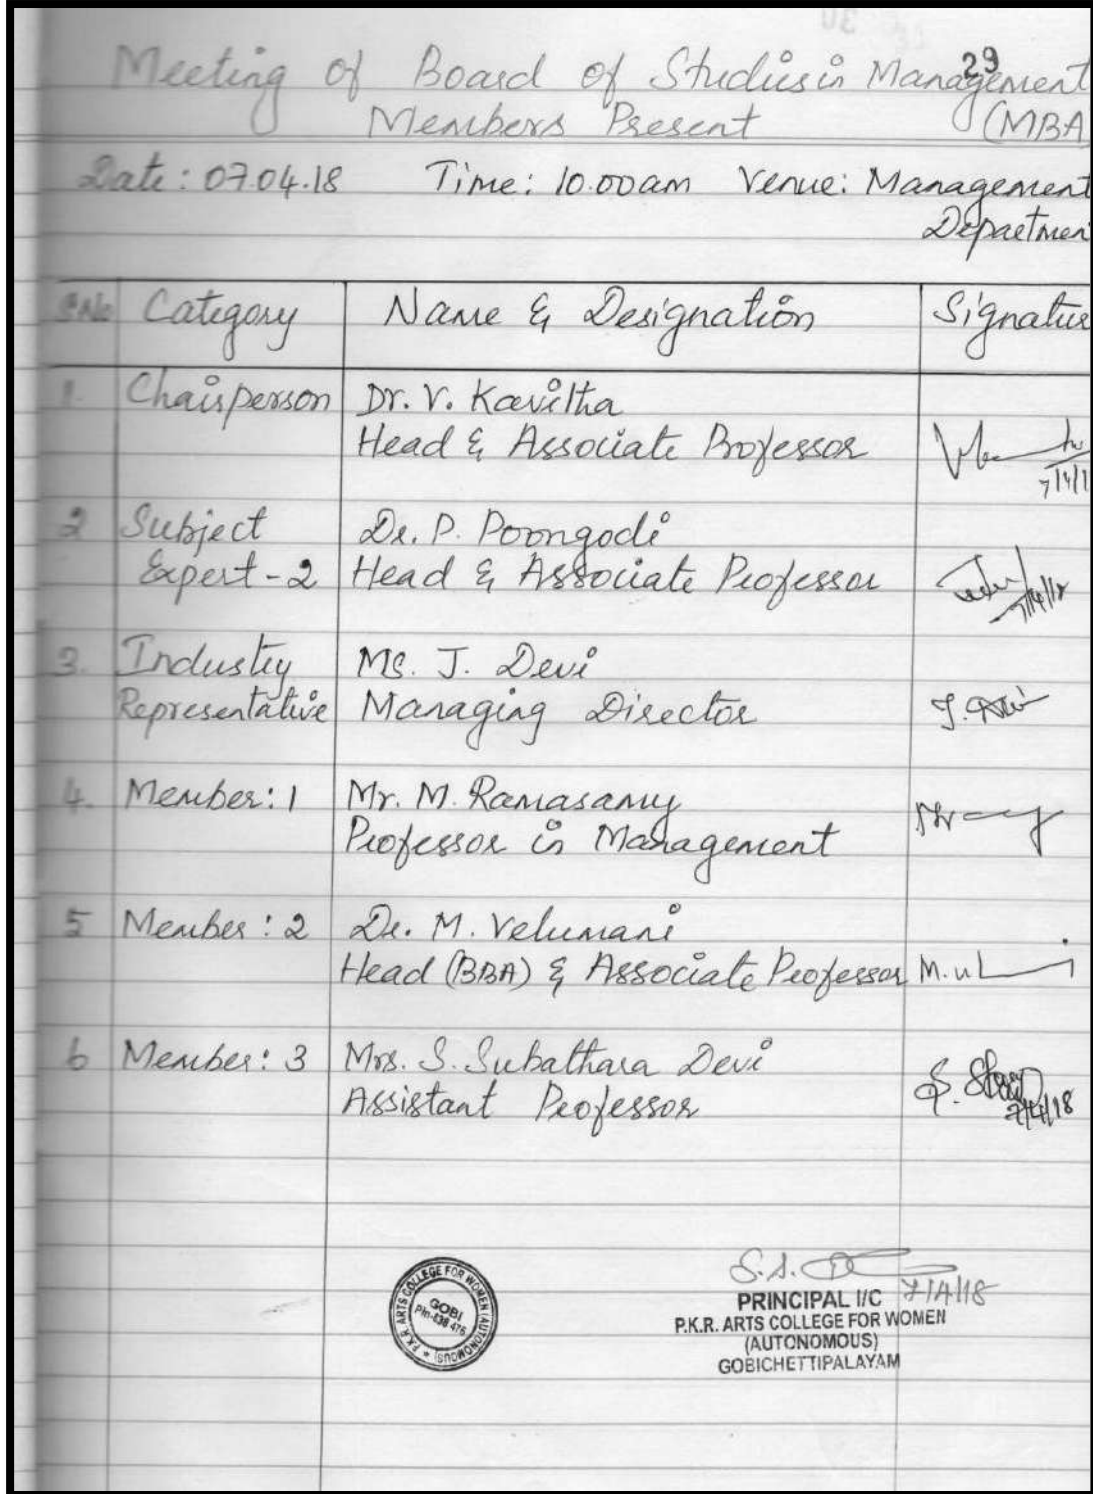 29
Meeting of Board of Studies in Management
Members Present (MBA
Date: 07.04.18 Time: 10.00am Venue: Management
Departmen
S.No Category Name & Designation Signatur
1. Chairperson Dr. V. Kavitha
Head & Associate Professor
7/4/1
2 Subject Dr. P. Poongodi
Expert-2 Head & Associate Professor
7/4/18
3. Industry Ms. J. Devi
Representative Managing Director J. Devi
4. Member: 1 Mr. M. Ramasamy
Professor in Management
5 Member: 2 Dr. M. Velumani
Head (BBA) & Associate Professor
6 Member: 3 Mrs. S. Subathara Devi
Assistant Professor
7/4/18
P.K.R. ARTS COLLEGE FOR WOMEN (AUTONOMOUS) *
GOBI
Pin-638 476
7/4/18
PRINCIPAL I/C
P.K.R. ARTS COLLEGE FOR WOMEN
(AUTONOMOUS)
GOBICHETTIPALAYAM